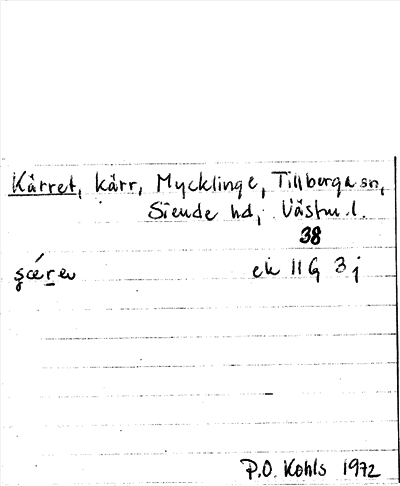 Kärret, kärr, Mycklinge, Tillberga sn,
Siende hd, Västm. l.
38
ek 11 G 3 j
P.O. Kohls 1972